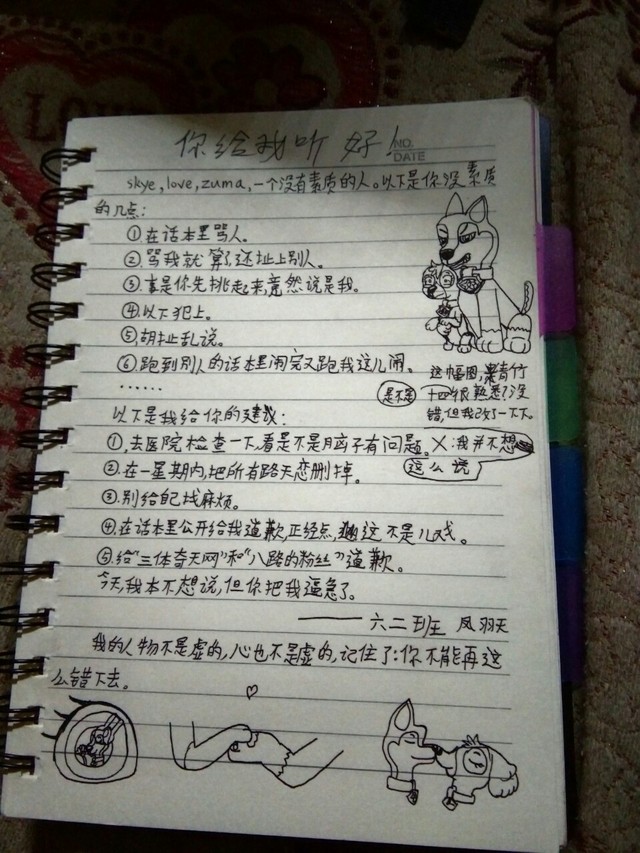 你给我听好!
NO.
DATE
skye,love,zuma,一个没有素质的人。以下是你没素质
的几点:
①在话本里骂人。
②骂我就算了还扯上别人。
③事是你先挑起来,竟然说是我。
④以下犯上。
⑤胡扯乱说。
⑥跑到别人的话本里闹完又跑我这儿闹。
……
这幅图,
是不是
十四很熟悉?没
错,但我改了一下下。
以下是我给你的建议:
①去医院检查一下,看是不是脑子有问题。X:我并不想
这么说
②在一星期内,把所有路天恋删掉。
③别给自己找麻烦。
④在话本里公开给我道歉,正经点,这不是儿戏。
⑤给“三体奇天网”和“八路的粉丝”道歉。
今天,我本不想说,但你把我逼急了。
——六二班 凤羽天
我的人物不是虚的,心也不是虚的,记住了:你不能再这
么错下去。